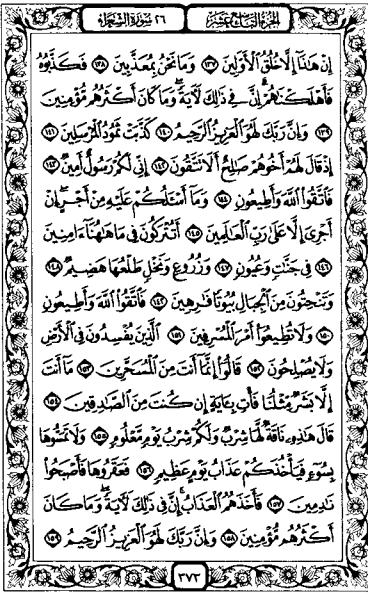 الجزء التاسع عشر
٢٦ سورة الشعراء
إِنْ هَٰذَآ إِلَّا خُلُقُ ٱلْأَوَّلِينَ ١٣٧ وَمَا نَحْنُ بِمُعَذَّبِينَ ١٣٨ فَكَذَّبُوهُ
فَأَهْلَكْنَٰهُمْ إِنَّ فِى ذَٰلِكَ لَءَايَةً وَمَا كَانَ أَكْثَرُهُم مُّؤْمِنِينَ
١٣٩ وَإِنَّ رَبَّكَ لَهُوَ ٱلْعَزِيزُ ٱلرَّحِيمُ ١٤٠ كَذَّبَتْ ثَمُودُ ٱلْمُرْسَلِينَ ١٤١
إِذْ قَالَ لَهُمْ أَخُوهُمْ صَٰلِحٌ أَلَا تَتَّقُونَ ١٤٢ إِنِّى لَكُمْ رَسُولٌ أَمِينٌ ١٤٣
فَٱتَّقُوا۟ ٱللَّهَ وَأَطِيعُونِ ١٤٤ وَمَآ أَسْـَٔلُكُمْ عَلَيْهِ مِنْ أَجْرٍ إِنْ
أَجْرِىَ إِلَّا عَلَىٰ رَبِّ ٱلْعَٰلَمِينَ ١٤٥ أَتُتْرَكُونَ فِى مَا هَٰهُنَآ ءَامِنِينَ
١٤٦ فِى جَنَّٰتٍ وَعُيُونٍ ١٤٧ وَزُرُوعٍ وَنَخْلٍ طَلْعُهَا هَضِيمٌ ١٤٨
وَتَنْحِتُونَ مِنَ ٱلْجِبَالِ بُيُوتًا فَٰرِهِينَ ١٤٩ فَٱتَّقُوا۟ ٱللَّهَ وَأَطِيعُونِ
١٥٠ وَلَا تُطِيعُوٓا۟ أَمْرَ ٱلْمُسْرِفِينَ ١٥١ ٱلَّذِينَ يُفْسِدُونَ فِى ٱلْأَرْضِ
وَلَا يُصْلِحُونَ ١٥٢ قَالُوٓا۟ إِنَّمَآ أَنتَ مِنَ ٱلْمُسَحَّرِينَ ١٥٣ مَآ أَنتَ
إِلَّا بَشَرٌ مِّثْلُنَا فَأْتِ بِـَٔايَةٍ إِن كُنتَ مِنَ ٱلصَّٰدِقِينَ ١٥٤
قَالَ هَٰذِهِۦ نَاقَةٌ لَّهَا شِرْبٌ وَلَكُمْ شِرْبُ يَوْمٍ مَّعْلُومٍ ١٥٥ وَلَا تَمَسُّوهَا
بِسُوٓءٍ فَيَأْخُذَكُمْ عَذَابُ يَوْمٍ عَظِيمٍ ١٥٦ فَعَقَرُوهَا فَأَصْبَحُوا۟
نَٰدِمِينَ ١٥٧ فَأَخَذَهُمُ ٱلْعَذَابُ إِنَّ فِى ذَٰلِكَ لَءَايَةً وَمَا كَانَ
أَكْثَرُهُم مُّؤْمِنِينَ ١٥٨ وَإِنَّ رَبَّكَ لَهُوَ ٱلْعَزِيزُ ٱلرَّحِيمُ ١٥٩
٣٧٣